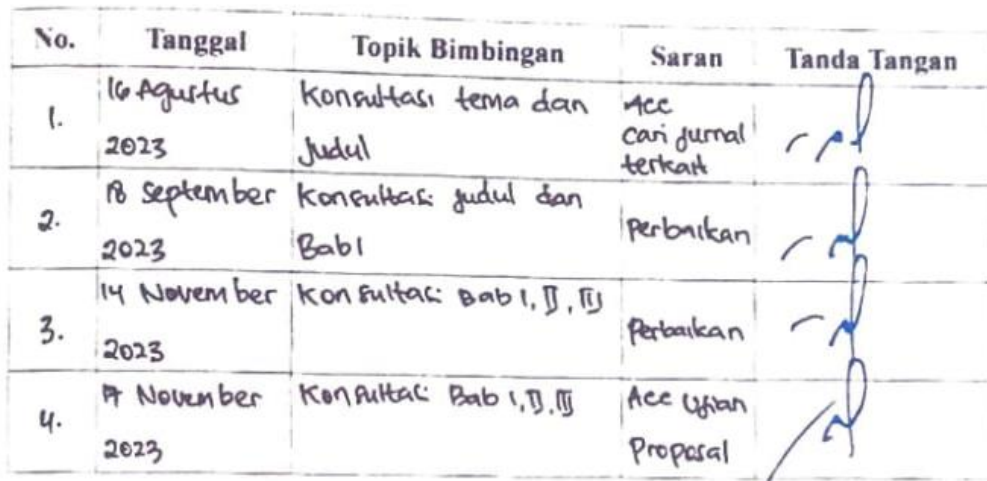 No. Tanggal Topik Bimbingan Saran Tanda Tangan
1. 16 Agustus 2023 Konsultasi tema dan Judul Acc cari jurnal terkait
2. 18 September 2023 Konsultasi judul dan Bab I Perbaikan
3. 14 November 2023 Konsultasi Bab I, II, III Perbaikan
4. 17 November 2023 Konsultasi Bab I, II, III Acc Ujian Proposal